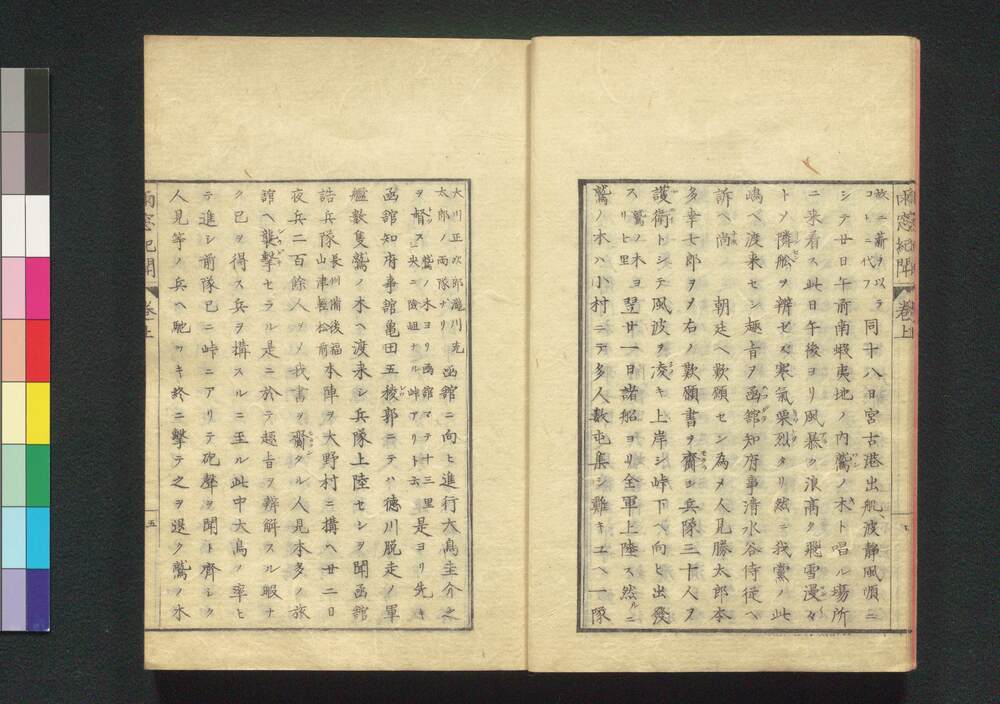 雨窓紀聞 巻上
故ニ薪ヲ以ラ
コトニ代フ 同十八日宮古港出帆波静風順ニ
シテ廿日午前南蝦夷地ノ内鷲ノ木ト唱ル場所
ニ来着ス此日午後ヨリ風暴ク浪高ク飛雪漫々
トノ隣舩ヲ辨セス寒氣栗烈タリ然ニ我黨ノ此
嶋ヘ渡来セシ趣旨ヲ函舘知府事清水谷侍従ヘ
訴ヘ尚 朝廷ヘ歎願セン為メ人見勝太郎本
多幸七郎ヲメ右ノ歎願書ヲ齎ヨ兵隊三十人ヲ
護衛トシテ風波ヲ凌キ上岸シ峠下ヘ向ヒ出發
ス鷲ノ木ヨ
リヒ里 翌廿一日諸船ヨリ全軍上陸ス然ルニ
鷲ノ木ハ小村ニテ多人数屯集シ難キユヘ一隊
大川正次郎滝川充
太郎ノ両隊ナリ 函舘ニ向ヒ進行大鳥圭介之
ヲ督ス 鷲ノ木ヨリ函舘マテ十三里
央ニ險岨ナル峠アリト云 是ヨリ先キ
函舘知府事舘亀田五稜郭ニテハ徳川脱走ノ軍
艦数隻鷲ノ木ヘ渡来シ兵隊上陸セシヲ聞函舘
詰兵隊 長州備後福
山津軽松前 本陣ヲ大野村ニ構ヘ廿二日
夜兵二百餘人ソノ我書ヲ齎タル人見本多ノ旅
舘ヘ襲撃セラル是ニ於テ趣旨ヲ辨解スル暇ナ
ク已ヲ得ス兵ヲ構スルニ至ル此中大鳥ノ率ヒ
テ進シ前隊已ニ峠ニアリテ砲聲ヲ聞ト齊シク
人見等ノ兵ヘ馳ツキ終ニ撃テ之ヲ退ク鷲ノ木
雨窓紀聞 巻上 五